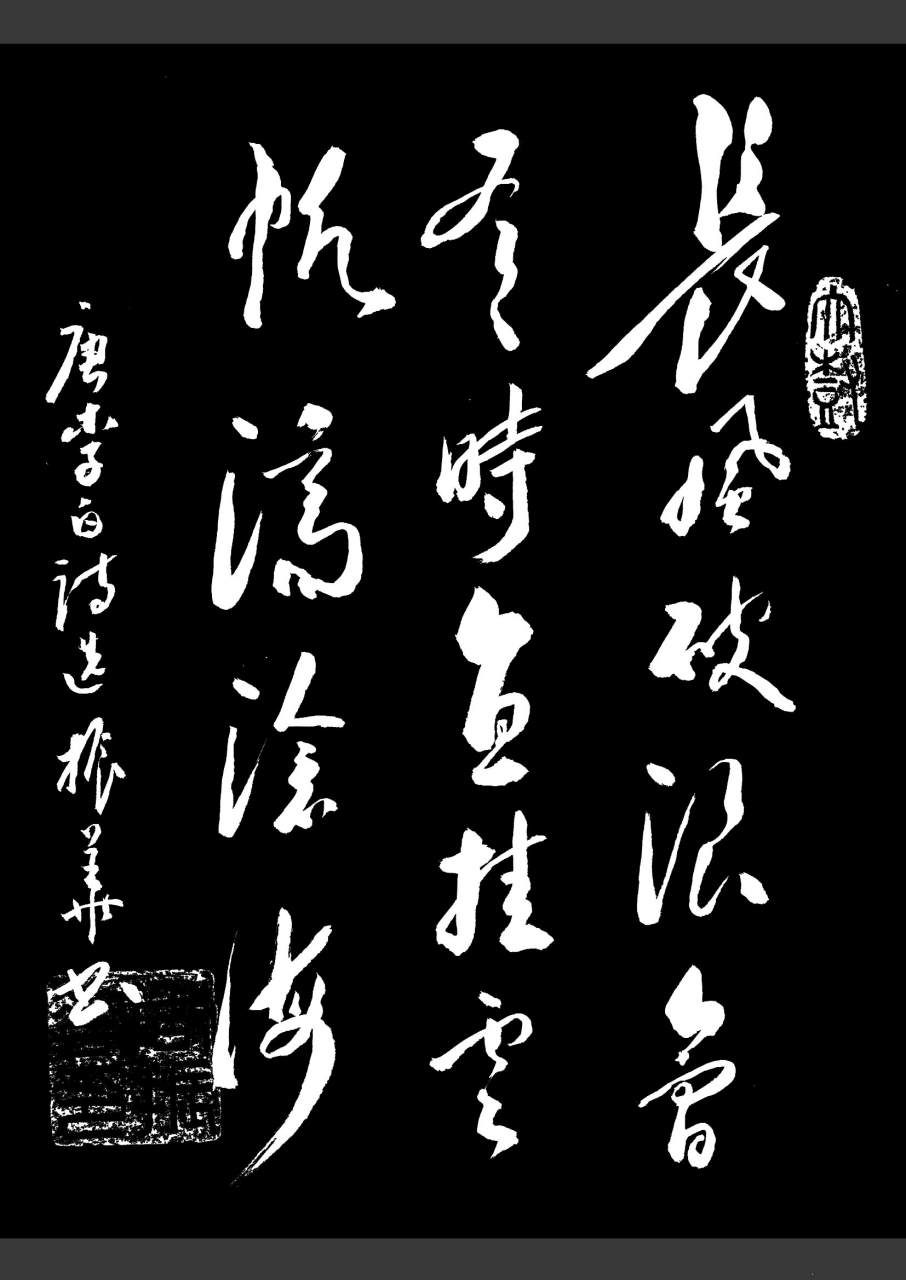 長風破浪會
有時直挂雲
帆濟滄海
唐李白詩选 振華书